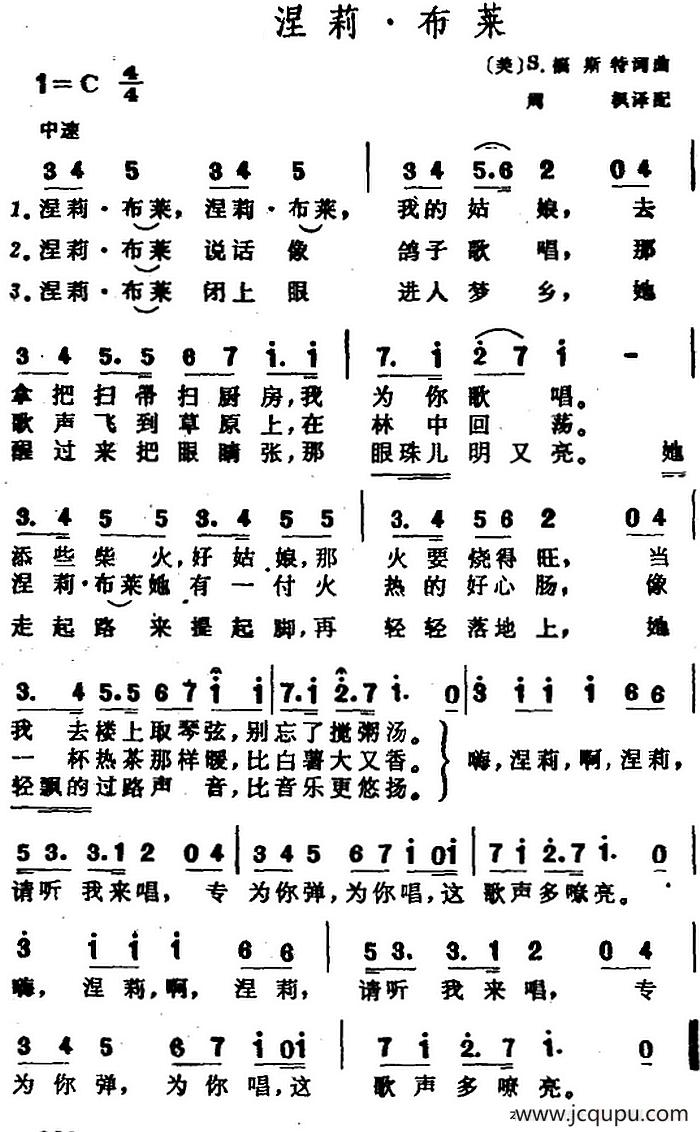 涅莉·布莱
1=C 4/4
〔美〕S.福斯特词曲
周枫译配
中速
3 4 5 3 4 5 | 3 4 5.6 2 0 4 |
1。涅莉·布莱，涅莉·布莱，我的姑娘，去
2。涅莉·布莱说话像鸽子歌唱，那
3。涅莉·布莱闭上眼进入梦乡，她
3 4 5. 5 6 7 i. i | 7. i 2 7 i - |
拿把扫帚扫厨房，我为你歌唱。
歌声飞到草原上，在林中回荡。
醒过来把眼睛张，那眼珠儿明又亮。她
3. 4 5 5 3. 4 5 5 | 3. 4 5 6 2 0 4 |
添些柴火，好姑娘，那火要烧得旺，当
涅莉·布莱她有一付火热的好心肠，像
走起路来提起脚，再轻轻落地上，她
3. 4 5.5 6 7 i i | 7.i 2.7 i. 0 | 3 i i i 6 6 |
我去楼上取琴弦，别忘了搅粥汤。
一杯热茶那样暖，比白薯大又香。
轻飘的过路声音，比音乐更悠扬。
嗨，涅莉，啊，涅莉，
5 3. 3.1 2 0 4 | 3 4 5 6 7 i 0 i | 7 i 2.7 i. 0
请听我来唱，专为你弹，为你唱，这歌声多嘹亮。
3 i i i 6 6 | 5 3. 3. 1 2 0 4 |
嗨，涅莉，啊，涅莉，请听我来唱，专
3 4 5 6 7 i 0 i | 7 i 2. 7 i. 0
为你弹，为你唱，这歌声多嘹亮。
www.jcqupu.com